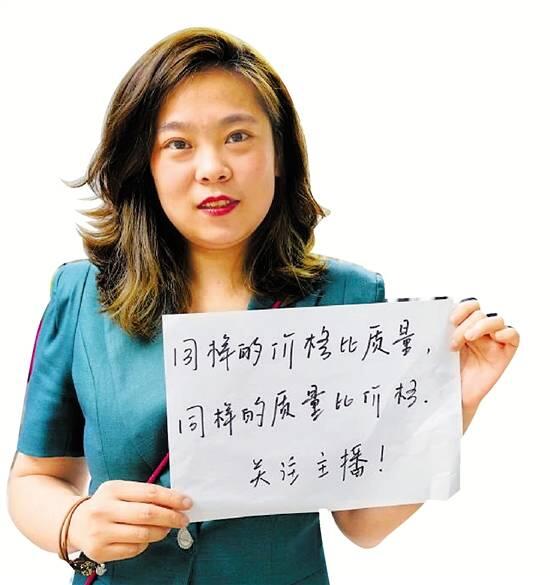 同样的价格比质量，
同样的质量比价格.
关注主播！